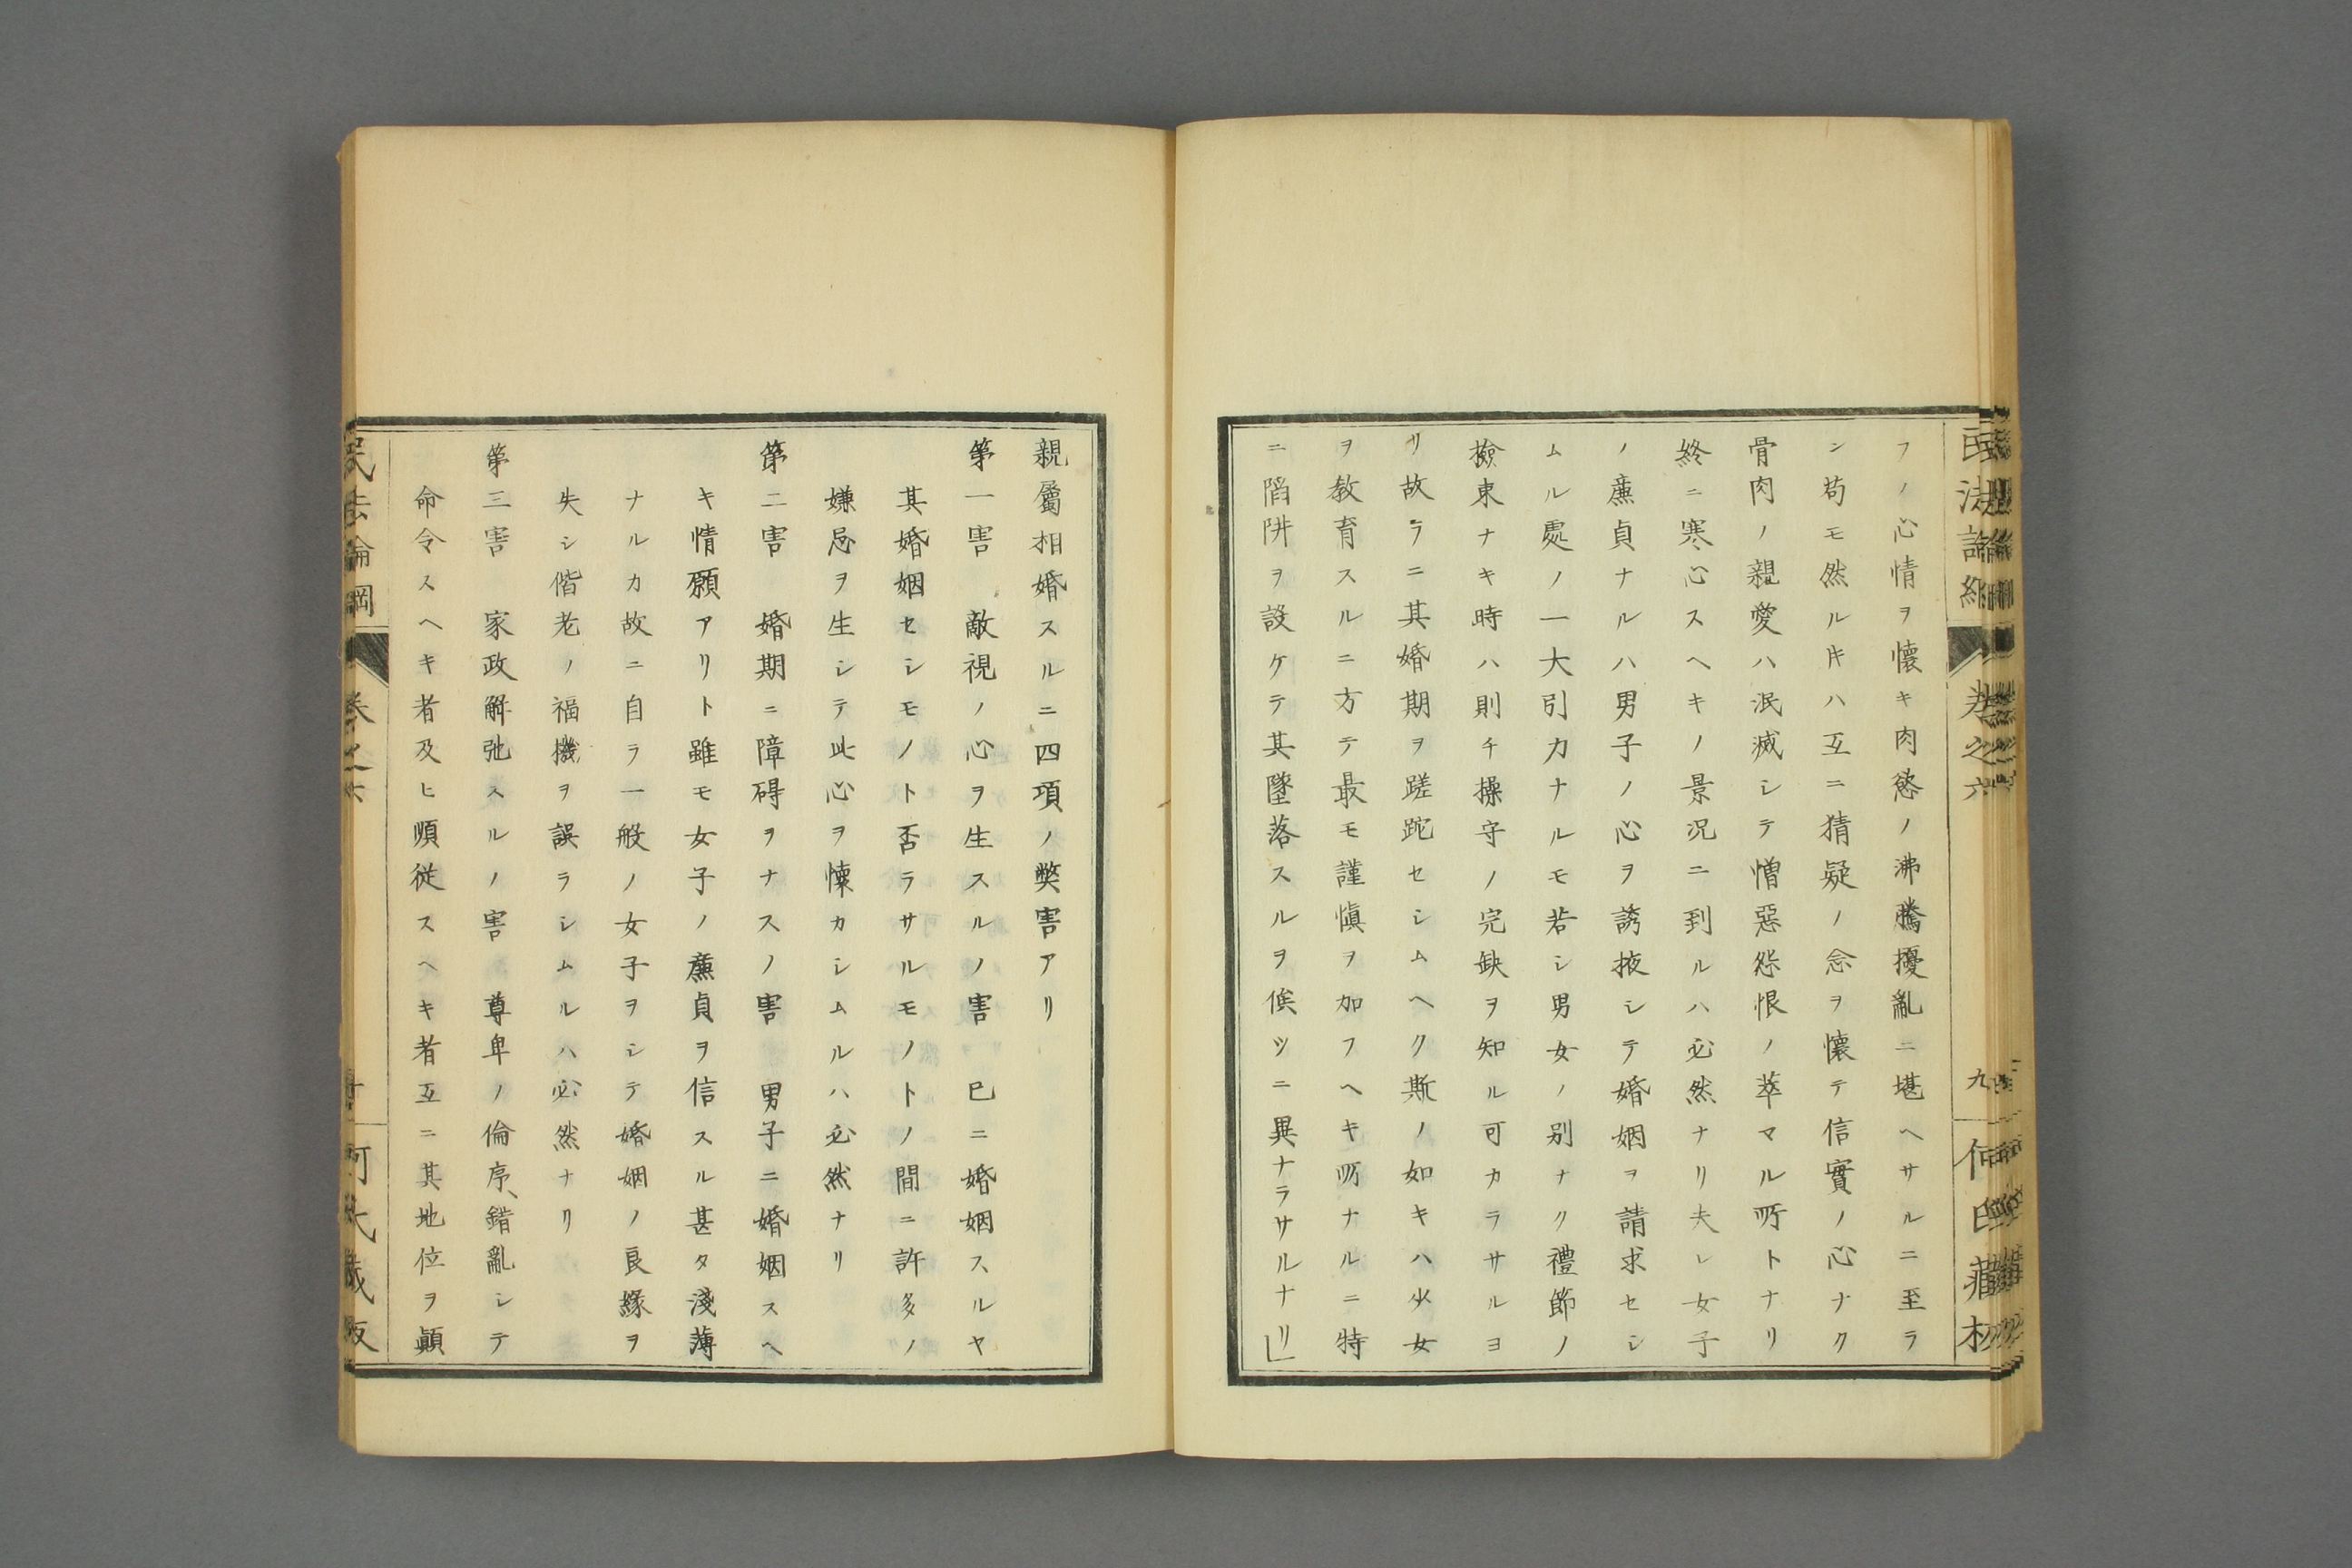 フノ心情ヲ懷キ肉慾ノ沸騰擾亂ニ堪ヘサルニ至ラ
ン苟モ然ル片ハ互ニ猜疑ノ念ヲ懷テ信實ノ心ナク
骨肉ノ親愛ハ泯滅シテ憎惡怨恨ノ萃マル所トナリ
終ニ寒心スヘキノ景况ニ到ルハ必然ナリ夫レ女子
ノ廉貞ナルハ男子ノ心ヲ誘掖シテ婚姻ヲ請求セシ
ムル處ノ一大引力ナルモ若シ男女ノ別ナク禮節ノ
撿束ナキ時ハ則チ操守ノ完缺ヲ知ル可カラサルヨ
リ故ラニ其婚期ヲ蹉跎セシムヘク斯ノ如キハ少女
ヲ敎育スルニ方テ最モ謹愼ヲ加フヘキ所ナルニ特
ニ陷阱ヲ設ケテ其墜落スルヲ俟ツニ異ナラサルナリ」
民法論綱 卷之六 九 何氏藏板
親屬相婚スルニ四項ノ獘害アリ
第一害 敵視ノ心ヲ生スルノ害 巳ニ婚姻スルヤ
其婚姻セシモノト否ラサルモノトノ間ニ許多ノ
嫌忌ヲ生シテ此心ヲ懷カシムルハ必然ナリ
第二害 婚期ニ障碍ヲナスノ害 男子ニ婚姻スヘ
キ情願アリト雖モ女子ノ廉貞ヲ信スル甚タ淺薄
ナルカ故ニ自ラ一般ノ女子ヲシテ婚姻ノ良緣ヲ
失シ偕老ノ福機ヲ誤ラシムルハ必然ナリ
第三害 家政解弛スルノ害 尊卑ノ倫序、錯亂シテ
命令スヘキ者及ヒ順從スヘキ者互ニ其地位ヲ顚
民法論綱 卷之六 何氏藏板